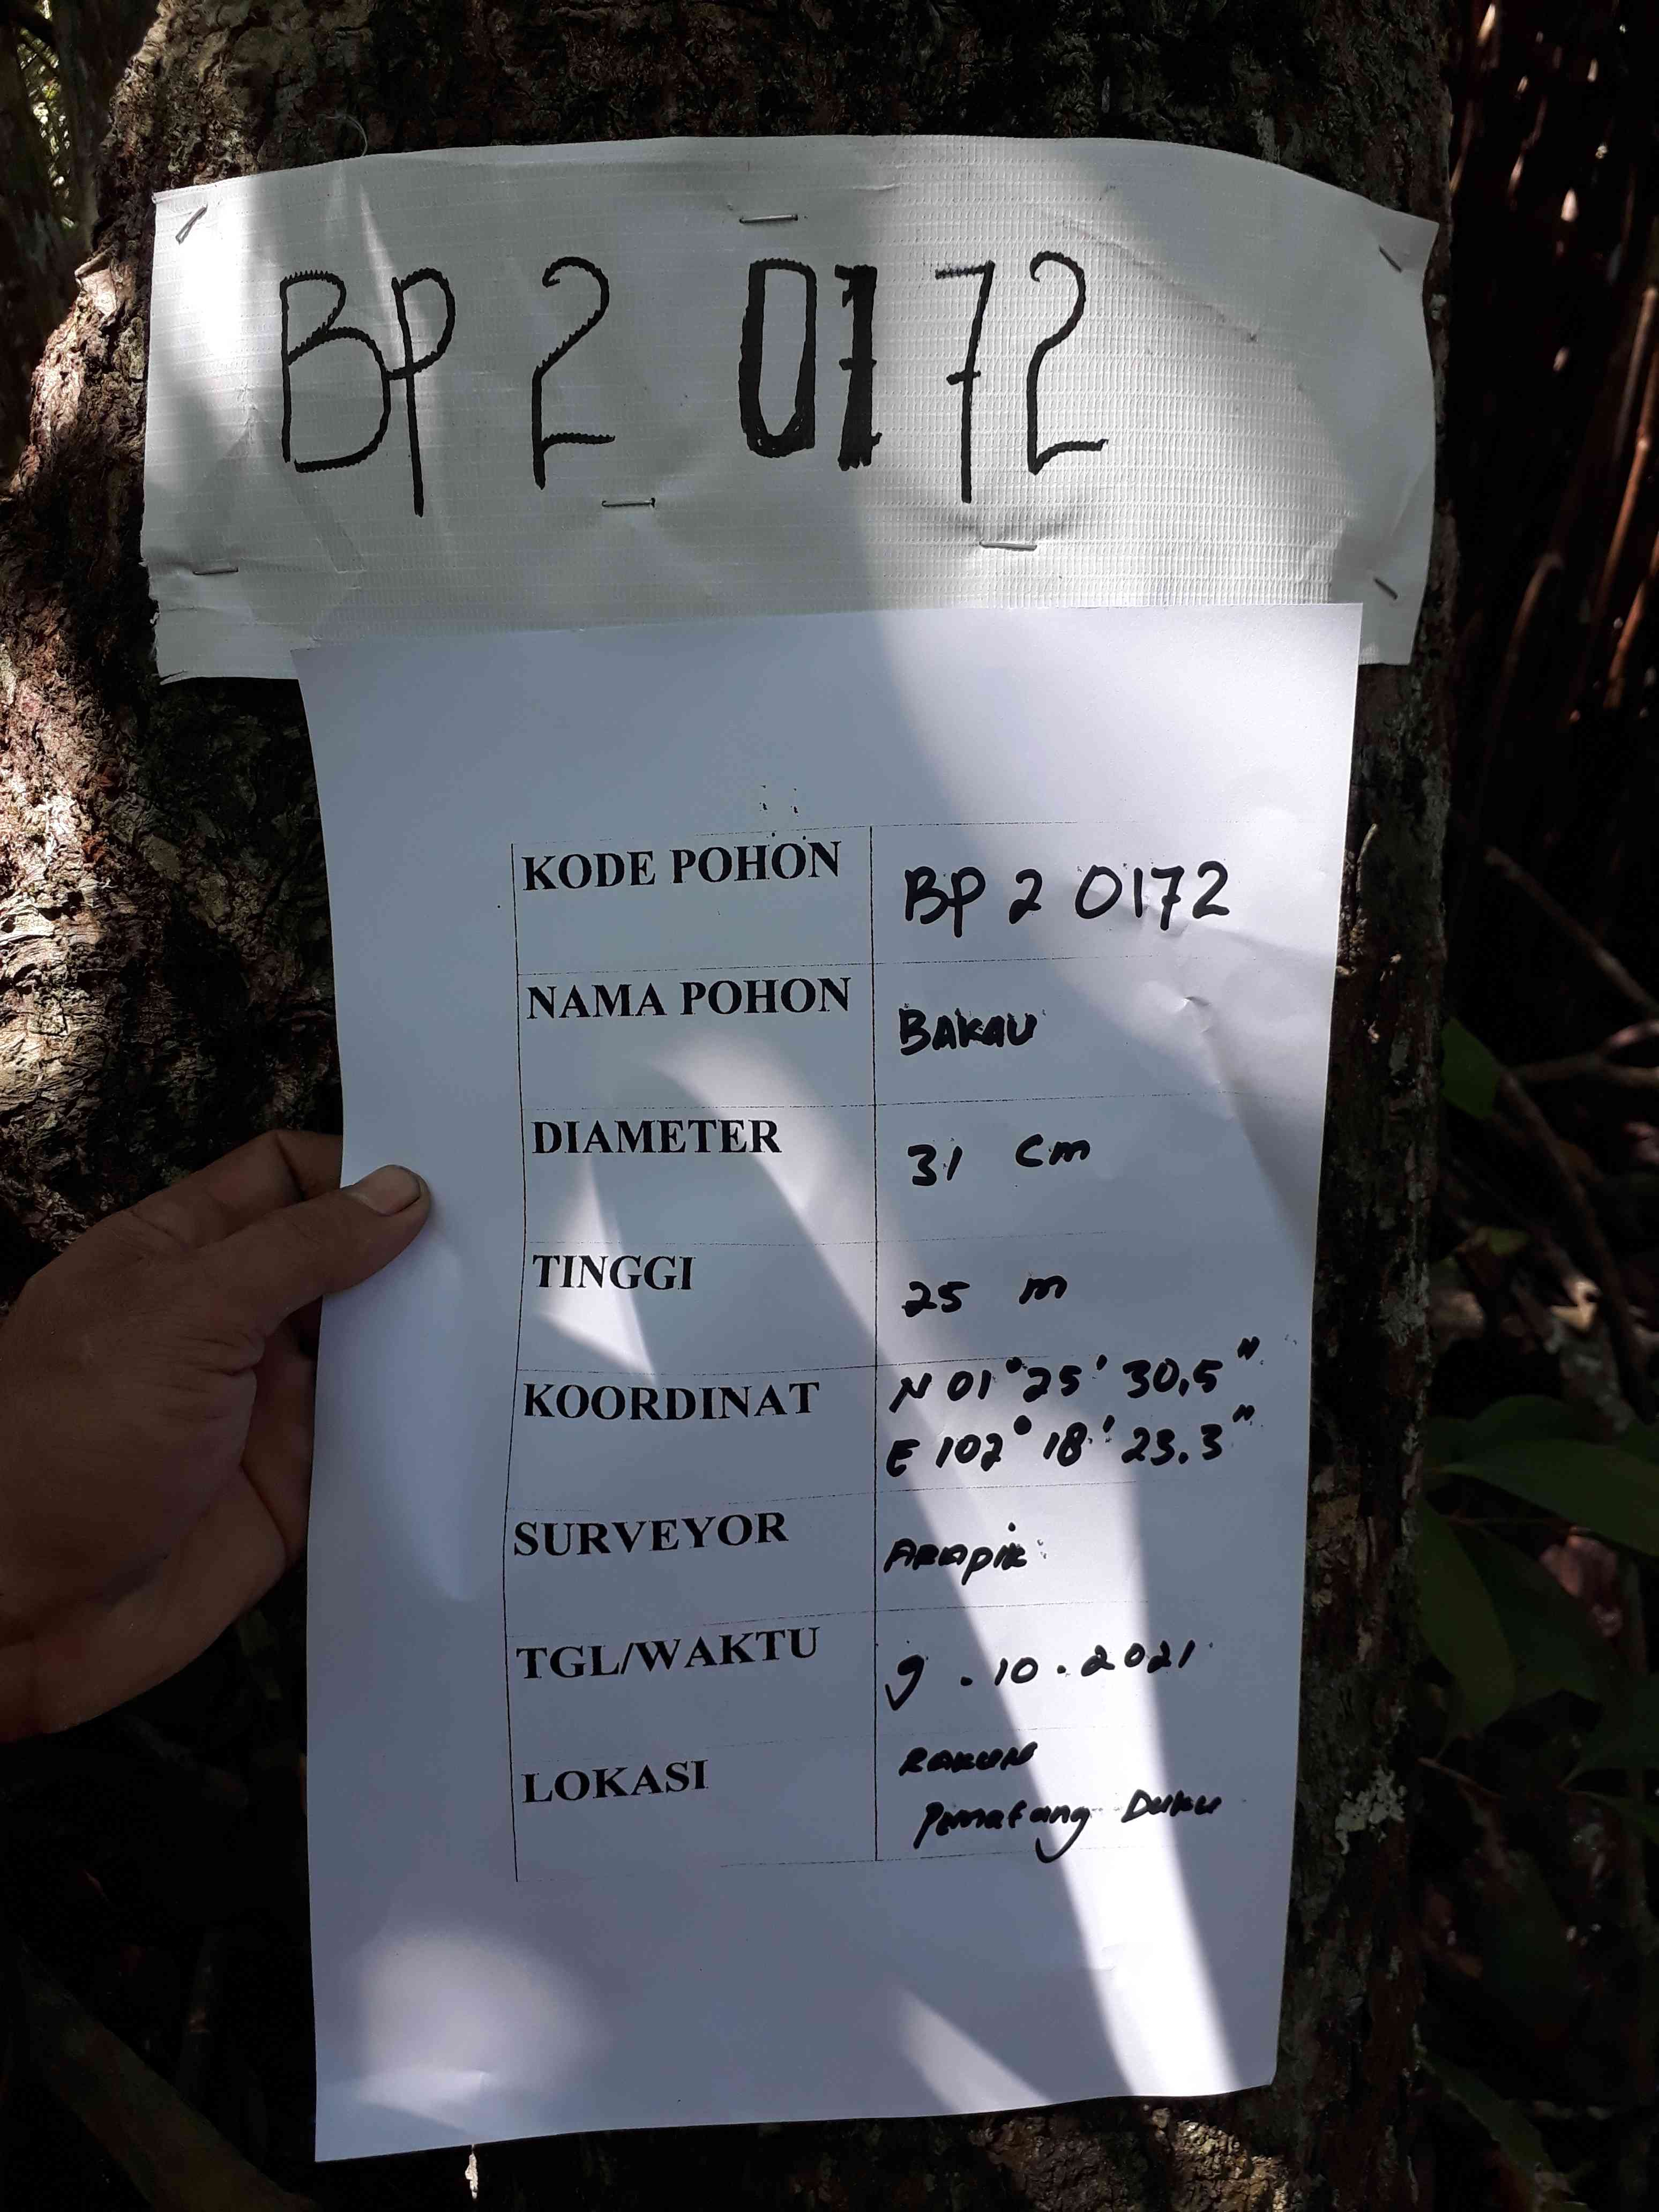 BP 2 0172
KODE POHON BP 2 0172
NAMA POHON BAKAU
DIAMETER 31 cm
TINGGI 25 m
KOORDINAT N 01° 25' 30,5"
E 102° 18' 23.3"
SURVEYOR ARAPIK
TGL/WAKTU 9 . 10 . 2021
LOKASI
Pematang Duku